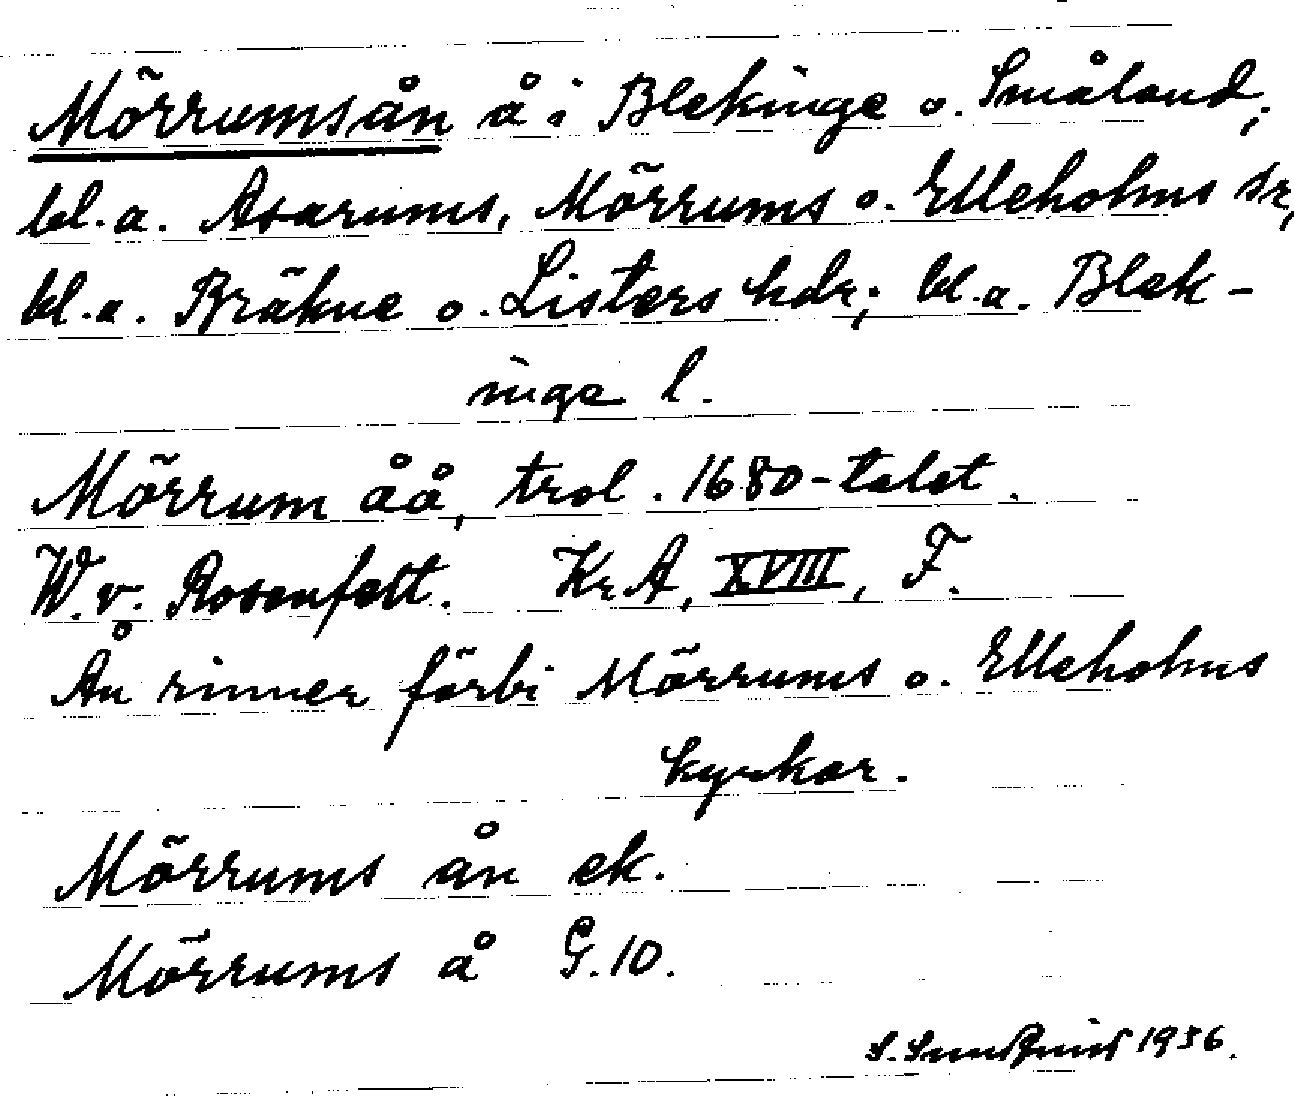 Mörrumsån å i Blekinge o. Småland;
bl.a. Asarums, Mörrums o. Elleholms sr,
bl.a. Bräkne o. Listers hdr; bl.a. Blek-
inge l.
Mörrum åå, trol. 1680-talet.
W. v. Rosenfelt. KrA, XVIII, F.
Ån rinner förbi Mörrums o. Elleholms
kyrkor.
Mörrums ån ek.
Mörrums å G.10.
S. Sundquist 1936.